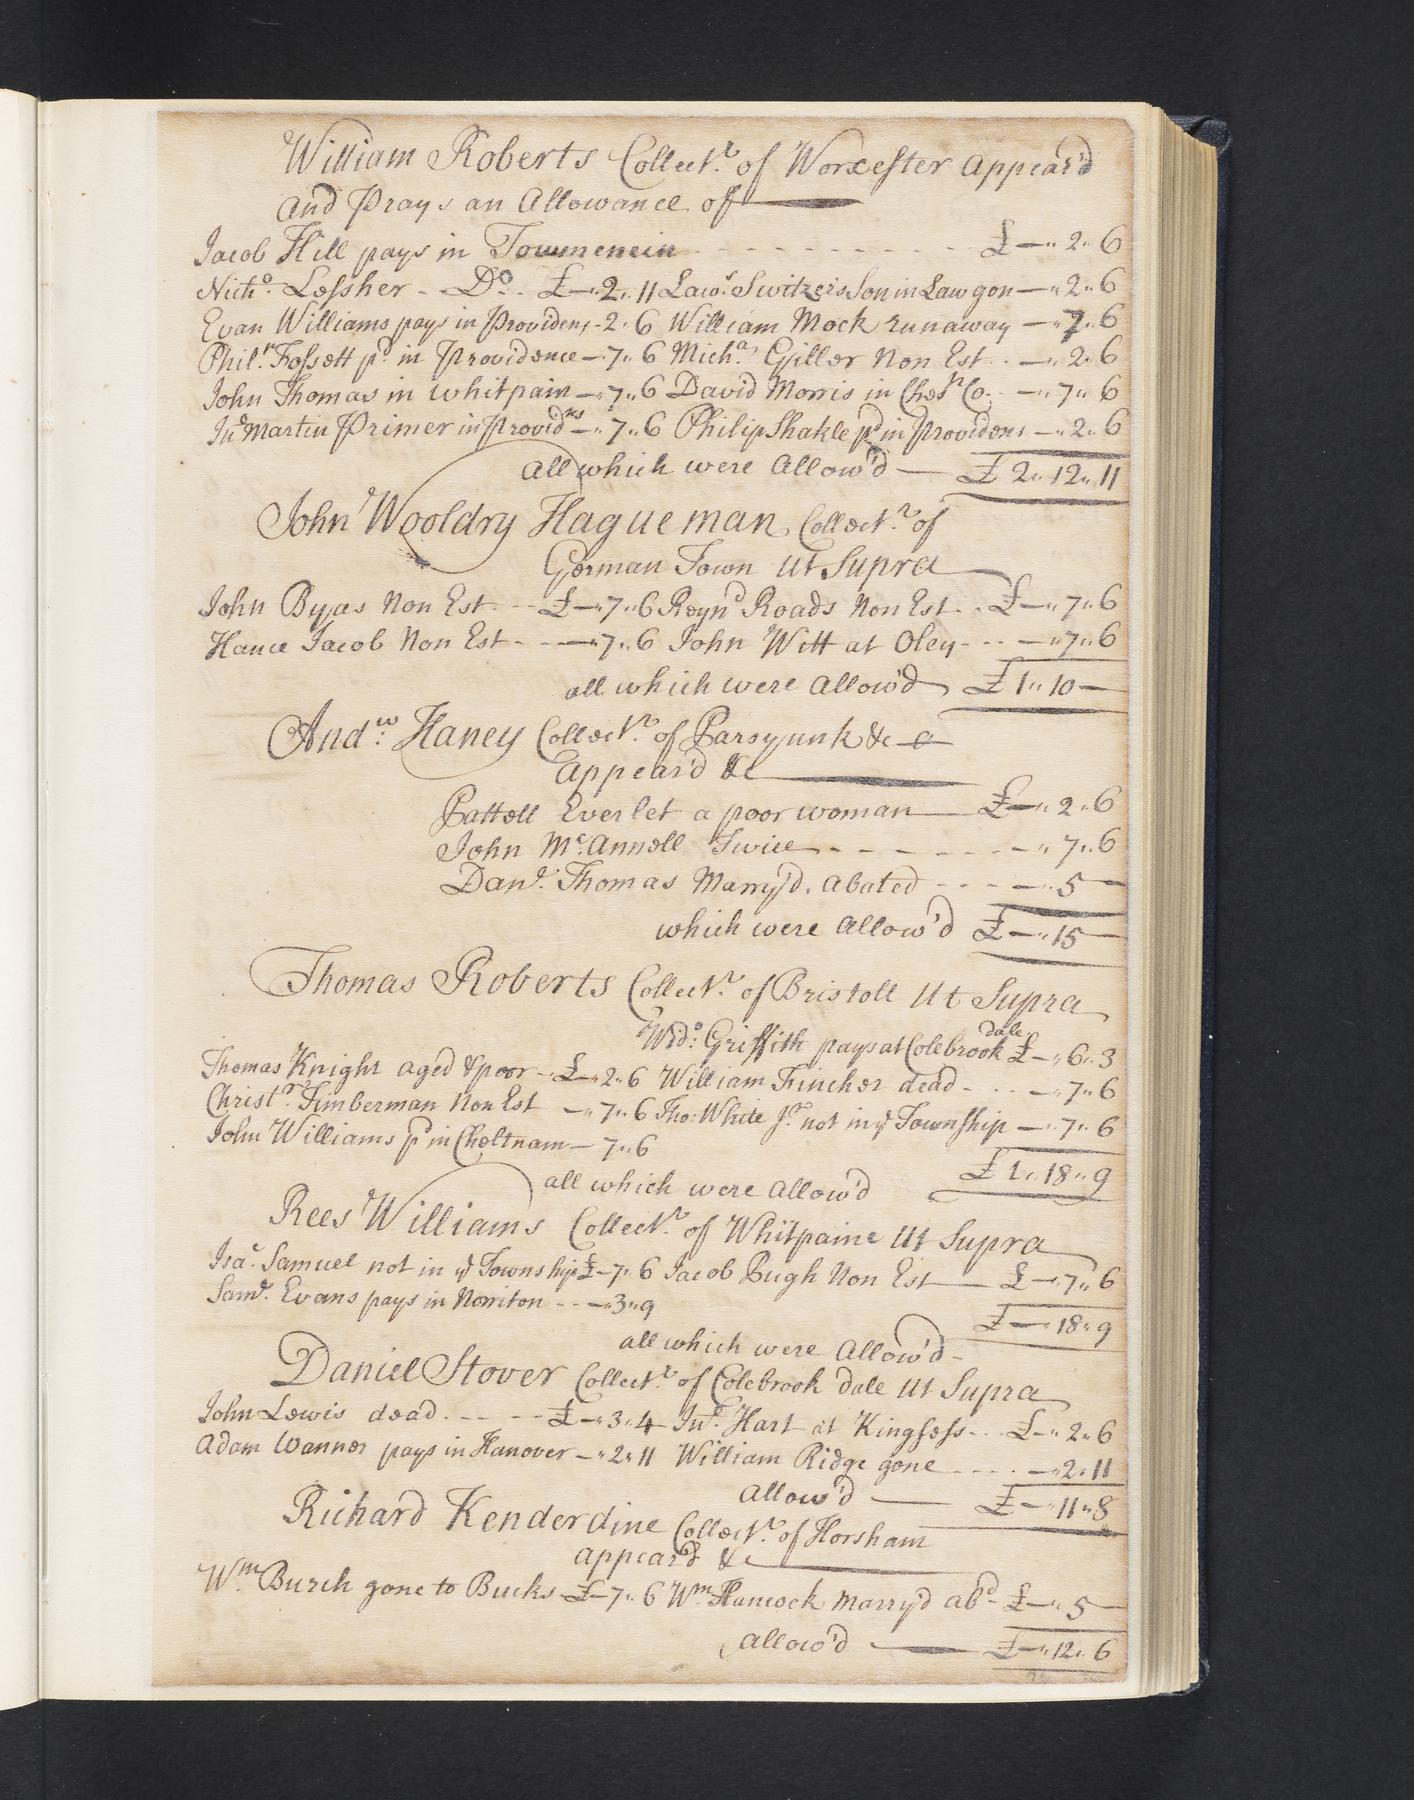 William Roberts Collect.r of Worcester appear'd
and Prays an Allowance of
Jacob Hill pays in Towmenein - - - £ — " 2 " 6
Nich.o Lessher - Do - £ — " 2 " 11 Law.s Switzers Son in Law gon — " 2 " 6
Evan Williams pays in Providens - 2 " 6 William Mock runaway — " 7 " 6
Phil.r Fossett p.d in Providence — 7 " 6 Mich.a Giller Non Est - — " 2 " 6
John Thomas in whitpain — " 7 " 6 David Morris in Ches.r Co. — " 7 " 6
Jno Martin Primer in Provid.ns — " 7 " 6 Philip Shakle p.d in Providens — " 2 " 6
all which were allow'd — £ 2 " 12 " 11
John Wooldry Hagueman Collect.r of
German Town ut Supra
John Byas Non Est - - £ — " 7 " 6 Reyn.d Roads Non Est - £ — " 7 " 6
Hance Jacob Non Est - - — " 7 " 6 John Witt at Oley - - - — " 7 " 6
all which were allow'd £ 1 " 10 —
And.w Haney Collect.r of Parsyunk &c a
appear'd &c
Battell Everlet a poor woman — £ — " 2 " 6
John Mc.annell Twice - - - - - — " 7 " 6
Dan.l Thomas Marry'd. abated - - - — " 5 —
which were allow'd £ — " 15 —
Thomas Roberts Collect.r of Bristoll Ut Supra
Wid.o Griffith pays at Colebrook dale £ — " 6 " 3
Thomas Knight aged & poor - £ — " 2 " 6 William Fincher dead - - - — " 7 " 6
Christ.r Timberman Non Est — " 7 " 6 Tho: White J.r not in ye Township — " 7 " 6
John Williams p.d in Cheltnam — 7 " 6
£ 1 " 18 " 9
all which were allow'd
Rees Williams Collect.r of Whitpaine Ut Supra
Isa.c Samuel not in ye Township £ — 7 " 6 Jacob Pugh Non Est — £ — " 7 " 6
Sam.l Evans pays in Norriton - - — " 3 " 9
£ — " 18 " 9
all which were allow'd -
Daniel Stover Collect.r of Colebrook dale Ut Supra
John Lewis dead - - - - £ — " 3 " 4 Jno. Hart at Kingsess - - £ — " 2 " 6
Adam Wanner pays in Hanover — " 2 " 11 William Ridge gone - - - - — " 2 " 11
allow'd — £ — " 11 " 8
Richard Kenderdine Collect.r of Horsham
appear'd &c
Wm. Burch gone to Bucks £ — 7 " 6 Wm. Hancock marry'd ab.d - £ — " 5 —
allow'd — £ — " 12 " 6